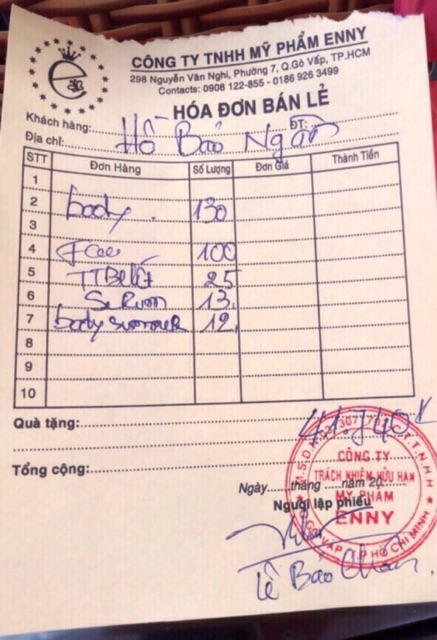 CÔNG TY TNHH MỸ PHẨM ENNY
298 Nguyễn Văn Nghi, Phường 7, Q.Gò Vấp, TP.HCM
Contacts: 0908 122-855 - 0186 926 3499
HÓA ĐƠN BÁN LẺ
Khách hàng: Hồ Bảo Ngân ĐT:
Địa chỉ:
STT Đơn Hàng Số Lượng Đơn Giá Thành Tiền
1
2 body 130
3
4 Face 100
5 25
6 Serum 13
7 body summer 12
8
9
10
Quà tặng:
Tổng cộng:
Ngày tháng năm 20
Người lập phiếu
CÔNG TY
TRÁCH NHIỆM HỮU HẠN
MỸ PHẨM
ENNY
Q. GÒ VẤP T.P HỒ CHÍ MINH
Lê Bảo Châu